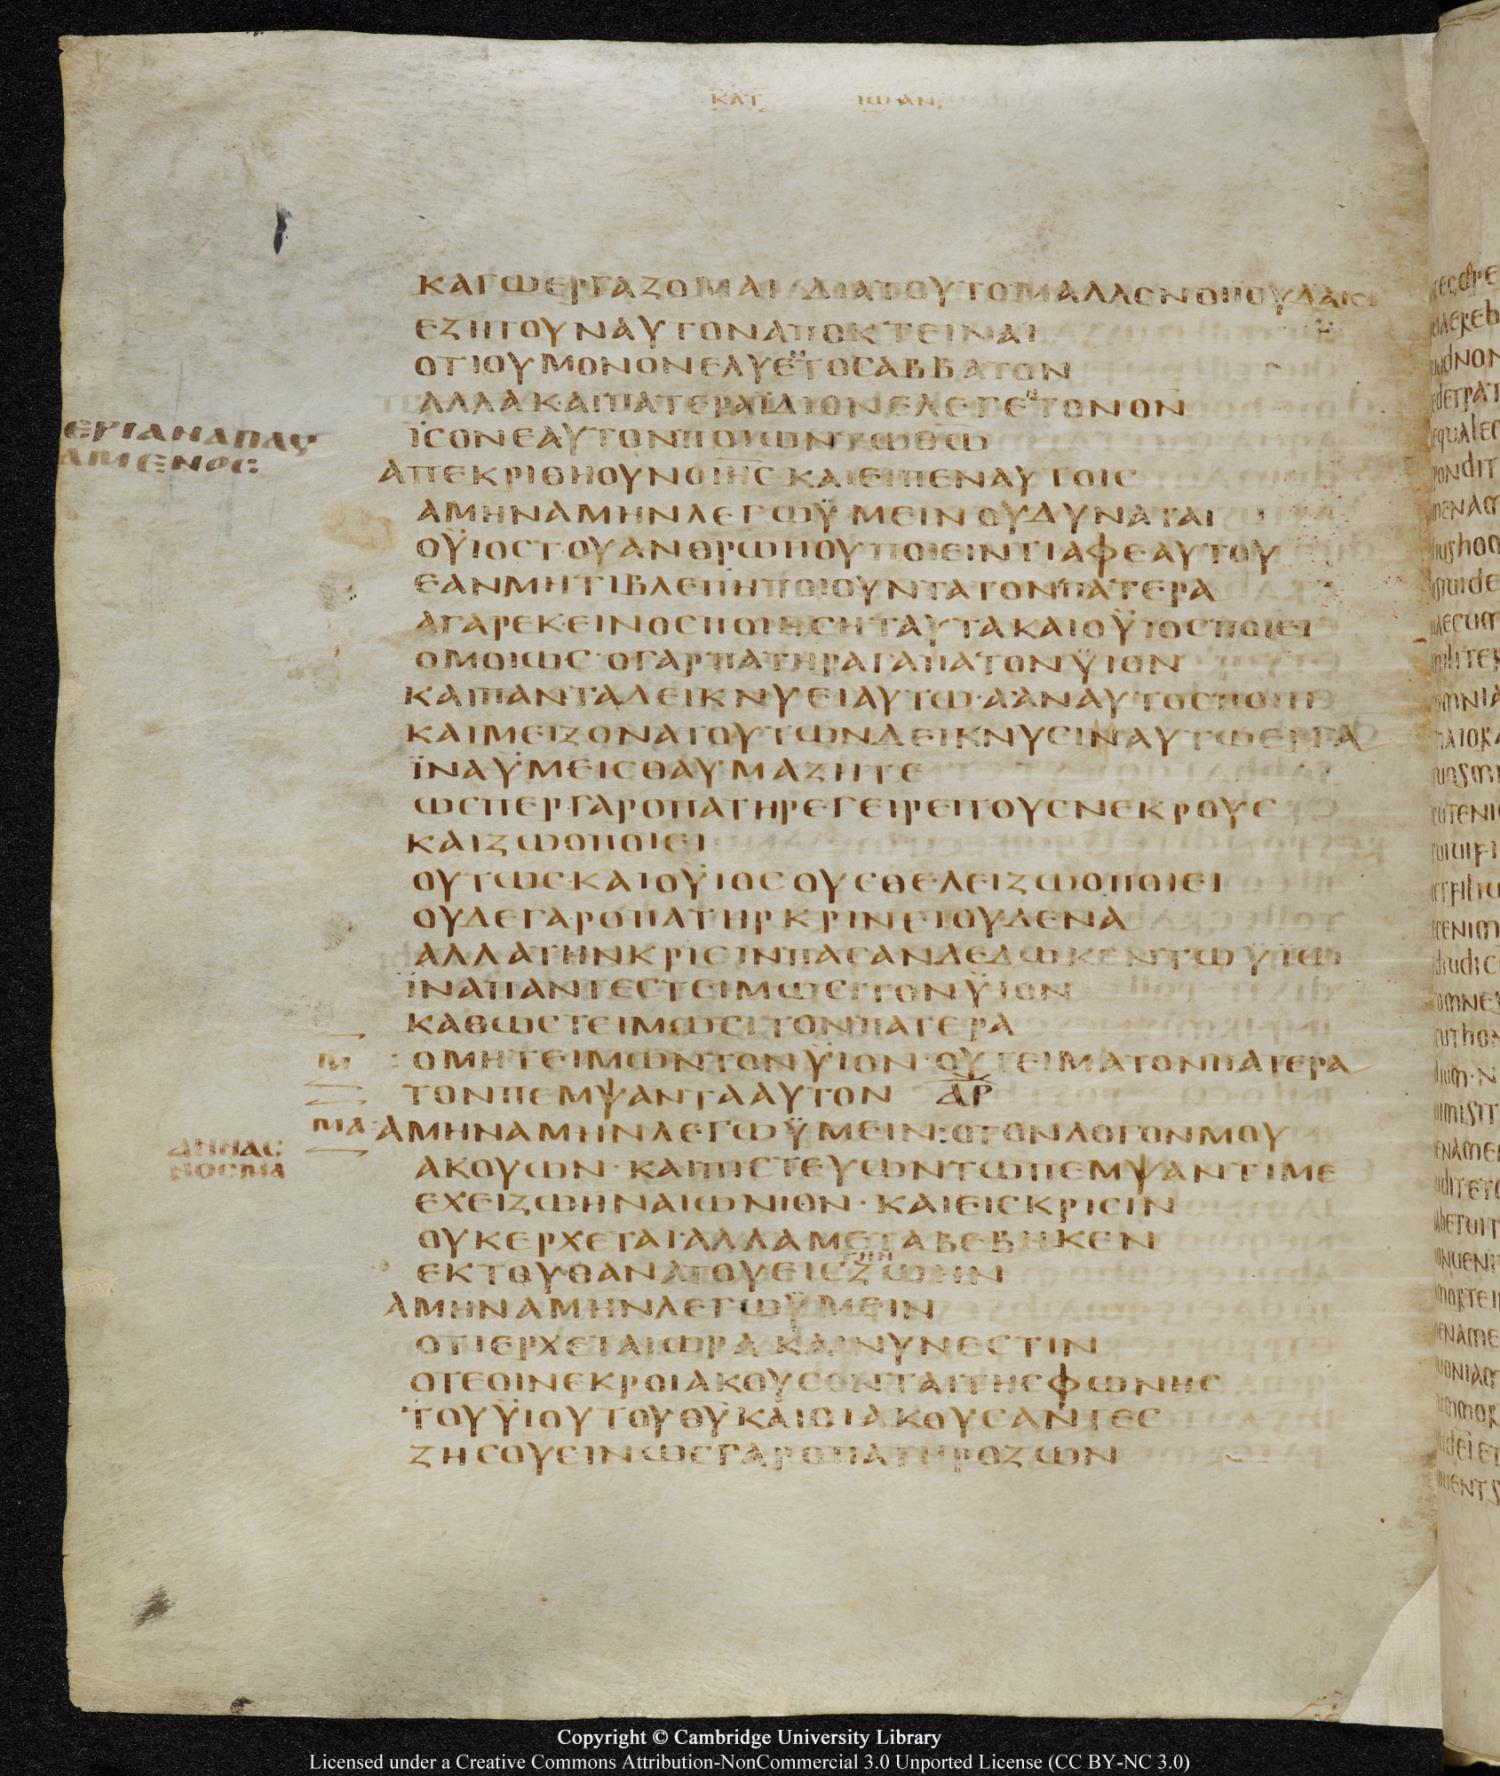 ΚΑΤ ΙΩΑΝ
ΚΑΓΩΕΡΓΑΖΟΜΑΙ ΔΙΑΤΟΥΤΟΜΑΛΛΟΝΟΙΙΟΥΔΑΙΟΙ
ΕΖΗΤΟΥΝΑΥΤΟΝΑΠΟΚΤΕΙΝΑΙ
ΟΤΙΟΥΜΟΝΟΝΕΛΥΕΝΤΟΣΑΒΒΑΤΟΝ
ΑΛΛΑΚΑΙΠΑΤΕΡΑΪΔΙΟΝΕΛΕΓΕΝΤΟΝΘΝ
ΪΣΟΝΕΑΥΤΟΝΠΟΙΩΝΤΩΘΩ
ΑΠΕΚΡΙΘΗΟΥΝΟΙΗΣ ΚΑΙΕΙΠΕΝΑΥΤΟΙΣ
ΑΜΗΝΑΜΗΝΛΕΓΩΫΜΕΙΝ ΟΥΔΥΝΑΤΑΙ
ΟΫΙΟΣΤΟΥΑΝΘΡΩΠΟΥΠΟΙΕΙΝΤΙΑΦΕΑΥΤΟΥ
ΕΑΝΜΗΤΙΒΛΕΠΗΠΟΙΟΥΝΤΑΤΟΝΠΑΤΕΡΑ
ΑΓΑΡΕΚΕΙΝΟΣΠΟΙΗΣΗΤΑΥΤΑΚΑΙΟΫΙΟΣΠΟΙΕΙ
ΟΜΟΙΩΣ·ΟΓΑΡΠΑΤΗΡΑΓΑΠΑΤΟΝΫΙΟΝ
ΚΑΙΠΑΝΤΑΔΕΙΚΝΥΕΙΑΥΤΩ·ΑΑΝΑΥΤΟΣΠΟΙΗ
ΚΑΙΜΕΙΖΟΝΑΤΟΥΤΩΝΔΕΙΚΝΥΣΙΝΑΥΤΩΕΡΓΑ
ΪΝΑΫΜΕΙΣΘΑΥΜΑΖΗΤΕ
ΩΣΠΕΡΓΑΡΟΠΑΤΗΡΕΓΕΙΡΕΙΤΟΥΣΝΕΚΡΟΥΣ
ΚΑΙΖΩΟΠΟΙΕΙ
ΟΥΤΩΣΚΑΙΟΫΙΟΣΟΥΣΘΕΛΕΙΖΩΟΠΟΙΕΙ
ΟΥΔΕΓΑΡΟΠΑΤΗΡΚΡΙΝΕΙΟΥΔΕΝΑ
ΑΛΛΑΤΗΝΚΡΙΣΙΝΠΑΣΑΝΔΕΔΩΚΕΝΤΩΫΙΩ
ΪΝΑΠΑΝΤΕΣΤΕΙΜΩΣΙΤΟΝΫΙΟΝ
ΚΑΘΩΣΤΕΙΜΩΣΙΤΟΝΠΑΤΕΡΑ
Μ ΟΜΗΤΕΙΜΩΝΤΟΝΫΙΟΝ·ΟΥΤΕΙΜΑΤΟΝΠΑΤΕΡΑ
ΤΟΝΠΕΜΨΑΝΤΑΑΥΤΟΝ ΑΡ
ΜΑ ΑΜΗΝΑΜΗΝΛΕΓΩΫΜΕΙΝ:ΟΤΟΝΛΟΓΟΝΜΟΥ
ΑΚΟΥΩΝ·ΚΑΙΠΙΣΤΕΥΩΝΤΩΠΕΜΨΑΝΤΙΜΕ
ΕΧΕΙΖΩΗΝΑΙΩΝΙΟΝ·ΚΑΙΕΙΣΚΡΙΣΙΝ
ΟΥΚΕΡΧΕΤΑΙ·ΑΛΛΑΜΕΤΑΒΕΒΗΚΕΝ
ΕΚΤΟΥΘΑΝΑΤΟΥΕΙΣΖΩΗΝ
ΑΜΗΝΑΜΗΝΛΕΓΩΫΜΕΙΝ
ΟΤΙΕΡΧΕΤΑΙΩΡΑ ΚΑΙΝΥΝΕΣΤΙΝ
ΟΤΕΟΙΝΕΚΡΟΙΑΚΟΥΣΟΝΤΑΙΤΗΣΦΩΝΗΣ
ΤΟΥΫΙΟΥΤΟΥΘΥΚΑΙΟΙΑΚΟΥΣΑΝΤΕΣ
ΖΗΣΟΥΣΙΝΩΣΓΑΡΟΠΑΤΗΡΟΖΩΝ
Copyright © Cambridge University Library
Licensed under a Creative Commons Attribution-NonCommercial 3.0 Unported License (CC BY-NC 3.0)